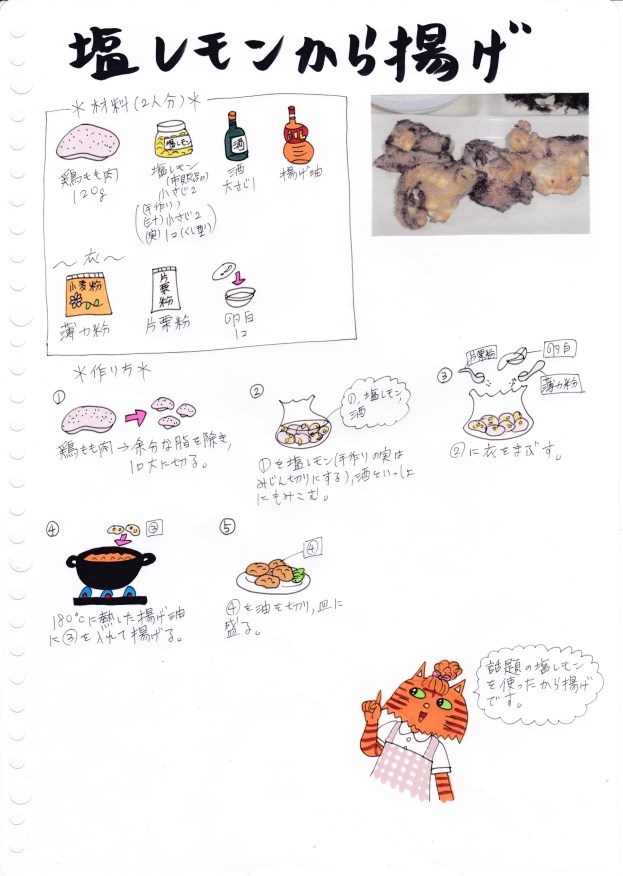 塩レモンから揚げ
＊材料(2人分)＊
鶏もも肉
120g
塩レモン
塩レモン
(市販品の)
小さじ2
(手作り)
(汁)小さじ2
(実)1コ(くし型)
酒
酒
大さじ1
OIL
揚げ油
〜衣〜
小麦粉
薄力粉
片栗粉
片栗粉
卵白
1コ
＊作り方＊
①
鶏もも肉→余分な脂を除き,
1口大に切る。
②
①,塩レモン,
酒
①を塩レモン(手作りの実は
みじん切りにする),酒といっしょ
にもみこむ。
③
片栗粉
卵白
薄力粉
②に衣をまぶす。
④
③
180℃に熱した揚げ油
に③を入れて揚げる。
⑤
④
④を油を切り,皿に
盛る。
話題の塩レモン
を使ったから揚げ
です。